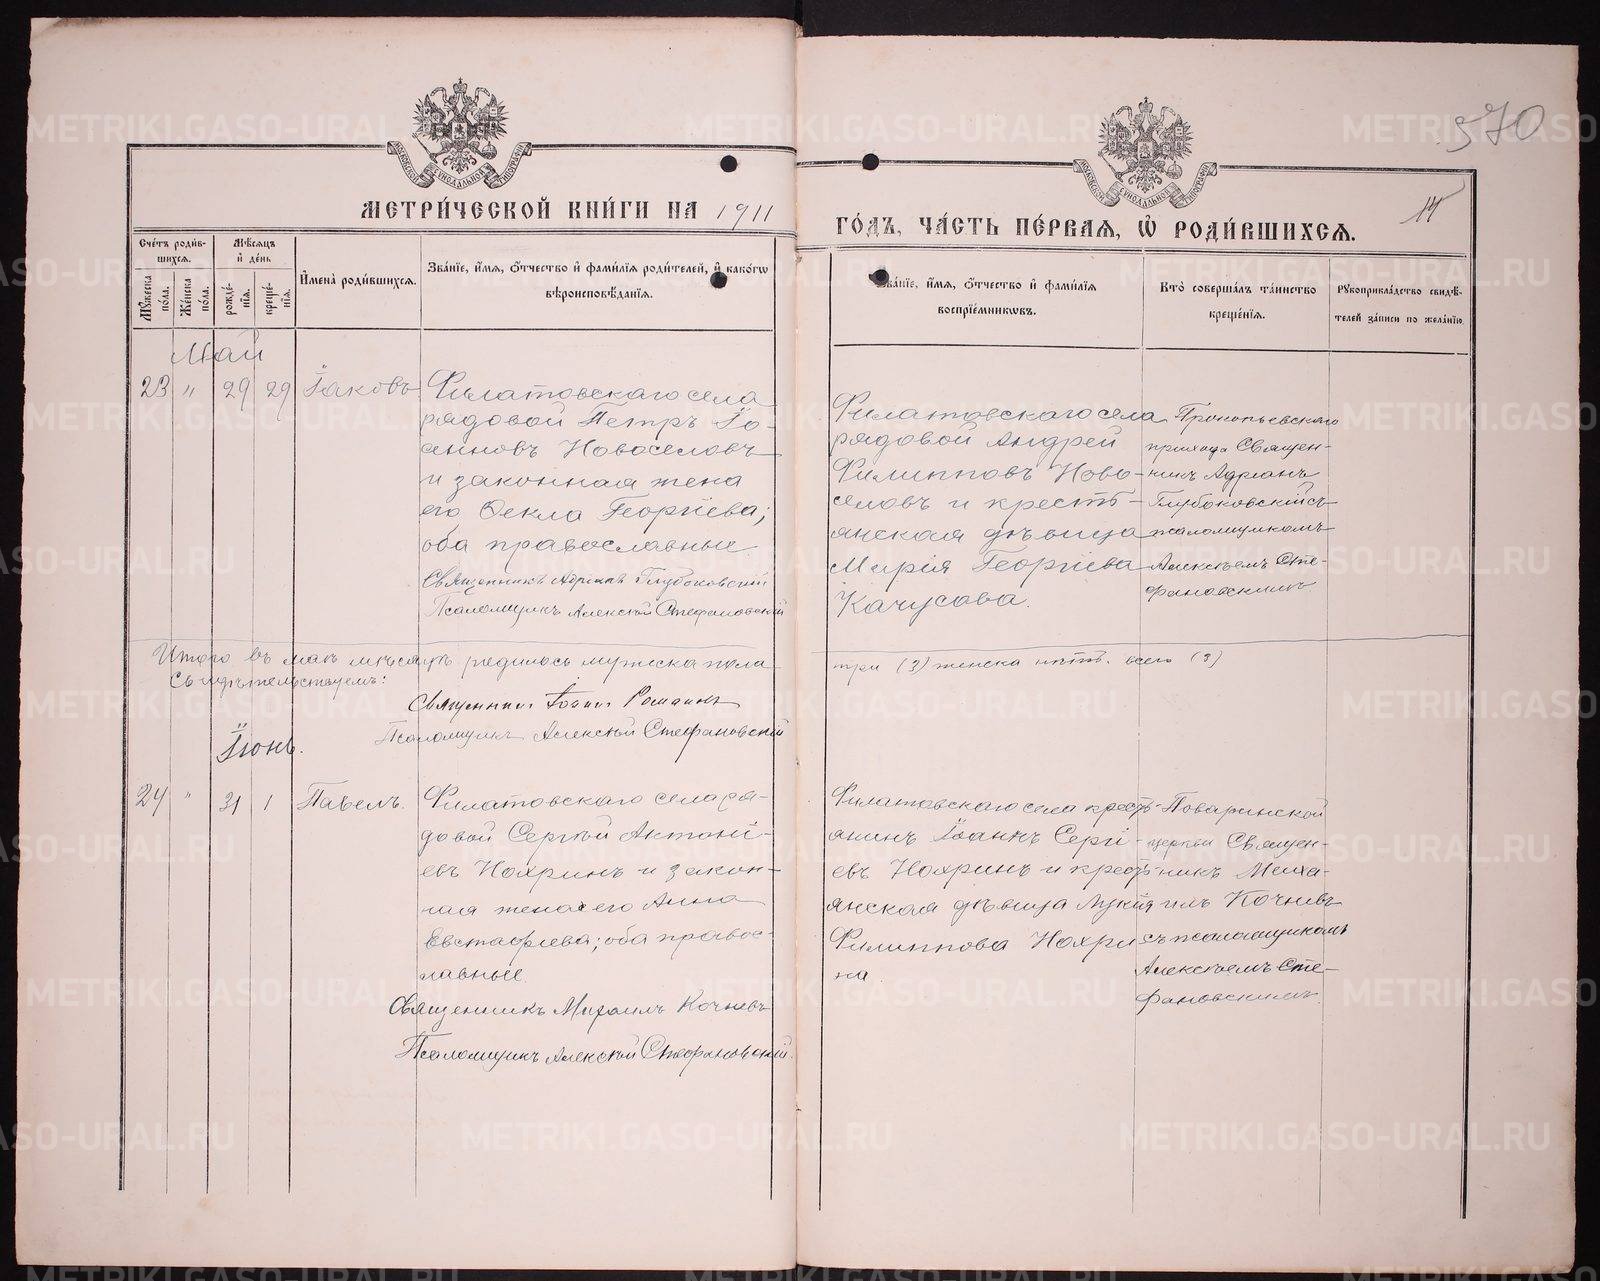 570
МОСКОВСКОЙ СѴНОДАЛЬНОЙ ТИПОГРАФІИ
МОСКОВСКОЙ СѴНОДАЛЬНОЙ ТИПОГРАФІИ
МЕТРИ́ЧЕСКОЙ КНИ́ГИ НА 1911
ГО́ДЪ, ЧА́СТЬ ПЕ́РВАѦ, Ѡ҆ РОДИ́ВШИХСѦ.
14
Сче́тъ роди́в-
шихсѧ.
Мꙋ́жеска
по́ла.
Же́нска
по́ла.
Мѣ́сѧцъ
и҆ де́нь
рожде́-
нїѧ.
креще́-
нїѧ.
И҆мена̀ роди́вшихсѧ.
Зва́нїе, и҆́мѧ, ѻ҆́тчество и҆ фами́лїѧ роди́телей, и҆ како́гѡ
вѣроисповѣ́данїѧ.
Зва́нїе, и҆́мѧ, ѻ҆́тчество и҆ фами́лїѧ
воспрїе́мникѡвъ.
Кто̀ соверша́лъ та́инство
креще́нїѧ.
Рꙋкоприкла́дство свидѣ́-
телей за́писи по жела́нїю.
Май
23 " 29 29 Іаковъ
Филатовскаго села
рядовой Петръ Іо-
анновъ Новоселовъ
и законная жена
его Ѳекла Георгіева;
оба православные
Священникъ Адріанъ Глубоковскій
Псаломщикъ Алексѣй Стефановскій
Филатовскаго села
рядовой Андрей
Филипповъ Ново-
селовъ и кресть-
янская дѣвица
Марія Георгіева
Качусова.
Прокопьевскаго
прихода Священ-
никъ Адріанъ
Глубоковскій съ
псаломщикомъ
Алексѣемъ Сте-
фановскимъ
Итого въ маѣ мѣсяцѣ родилось мужеска пола
три (3) женска нѣтъ. всего (3)
Свидѣтельствуемъ:
Священникъ Іоаннъ Романовъ
Псаломщикъ Алексѣй Стефановскій
Іюнь.
24 " 31 1 Павелъ.
Филатовскаго села ря-
довой Сергѣй Антоні-
евъ Нохринъ и закон-
ная жена его Анна
Евстафіева; оба правос-
лавные.
Священникъ Михаилъ Кочневъ
Псаломщикъ Алексѣй Стефановскій.
Филатовскаго села кресть-
янинъ Іоаннъ Сергі-
евъ Нохринъ и кресть-
янская дѣвица Лукія
Филиппова Нохри
на
Поваринской
церкви Священ-
никъ Миха-
илъ Кочневъ
съ псаломщикомъ
Алексѣемъ Сте-
фановскимъ.
METRIKI.GASO-URAL.RU